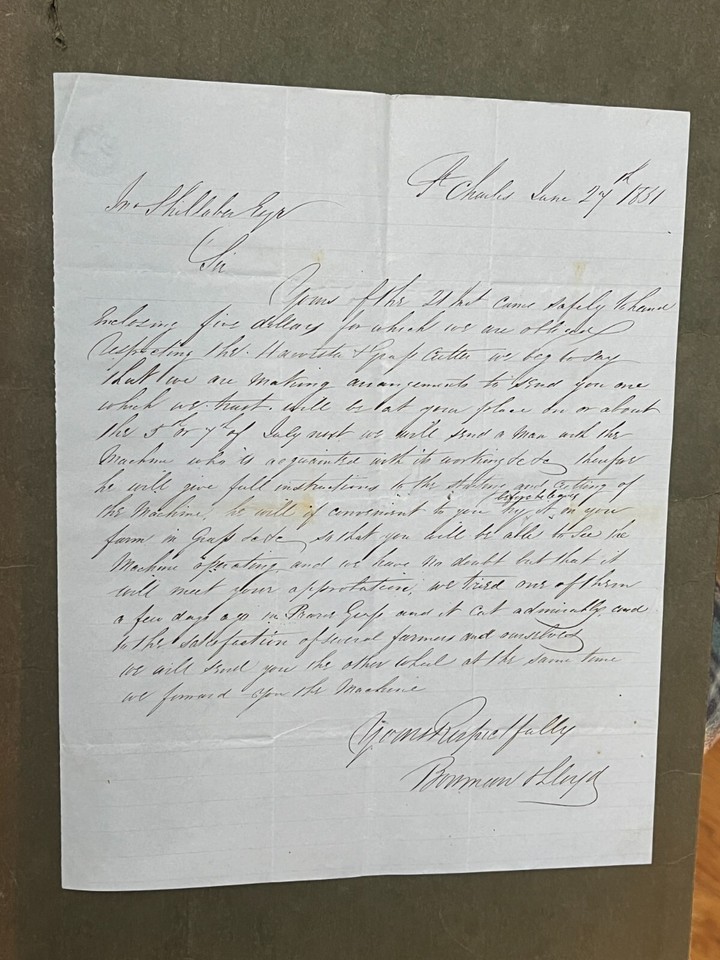 St Charles June 27th 1851
Jno Shillaber Esqr
Sir
Yours of the 21 inst came safely to hand
Enclosing five dollars for which we are obliged
Respecting the Harvester & Grass Cutter we beg to say
that we are making arrangements to send you one
which we trust will be at your place on or about
the 5th or 7th of July next we will send a man with the
Machine who is acquainted with its working &c &c therefore
he will give full instructions to the starting and cutting of
the Machine, he will if convenient to you try it in your
farm in Grass &c &c so that you will be able to see the
Machine operating and we have no doubt but that it
will meet your approbation, we tried one of them
a few days ago in Prarie Grass and it cut admirably and
to the satisfaction of several farmers and ourselves
we will send you the other wheel at the same time
we forward you the Machine
Yours Respectfully
Bowman & Lloyd